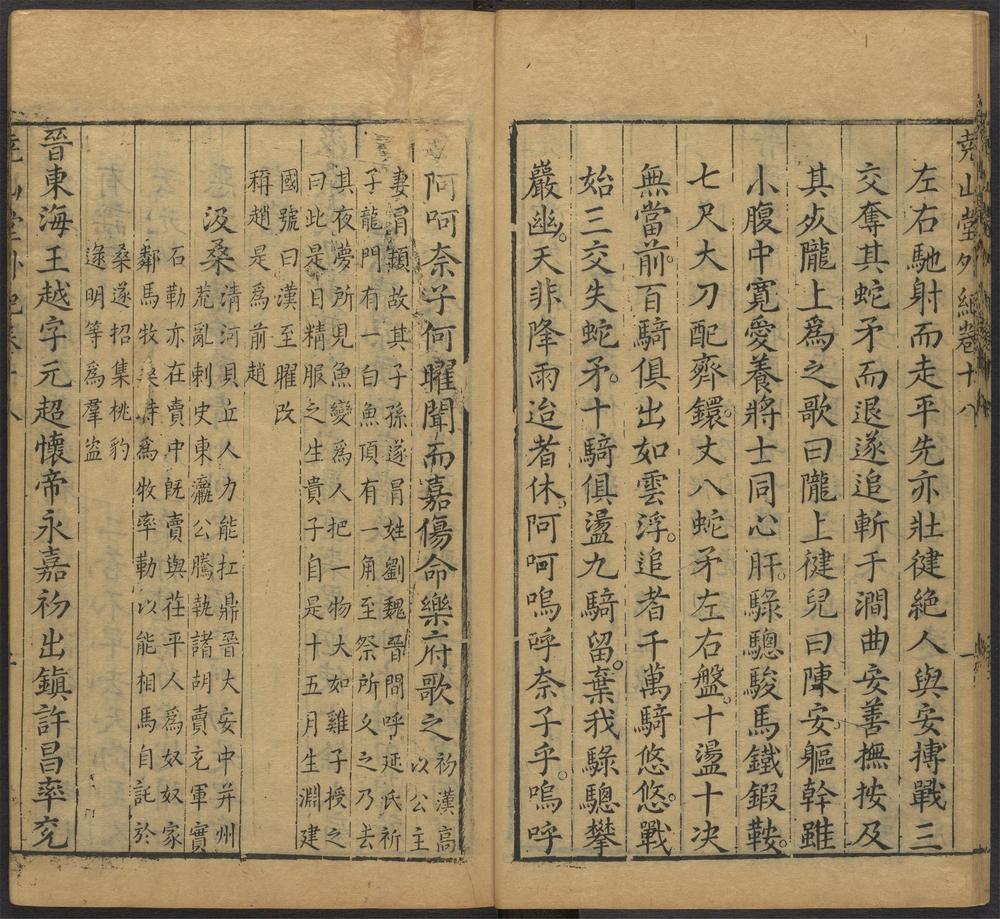 堯山堂外紀卷十八
一
左右馳射而走平先亦壯健絕人與安搏戰三
交奪其蛇矛而退遂追斬于澗曲安善撫按及
其死隴上爲之歌曰隴上健兒曰陳安軀幹雖
小腹中寬愛養將士同心肝騄驄駿馬鐵鍜鞍
七尺大刀配齊鐶丈八蛇矛左右盤十盪十决
無當前百騎俱出如雲浮追者千萬騎悠悠戰
始三交失蛇矛十騎俱盪九騎留棄我騄驄攀
嚴幽天非降雨迨者休阿呵嗚呼奈子乎嗚呼
阿呵奈子何曜聞而嘉傷命樂府歌之初漢高
以公主
妻冐頓故其子孫遂冐姓劉魏晉間呼延氏祈
子龍門有一白魚頂有一角至祭所久之乃去
其夜夢所見魚變爲人把一物大如雞子授之
曰此是日精服之生貴子自是十五月生淵建
國號曰漢至曜改
稱趙是爲前趙
汲桑清河貝丘人力能扛鼎晉大安中并州
荒亂刺史東瀛公騰執諸胡賣充軍實
石勒亦在賣中旣賣與茌平人爲奴奴家
鄰馬牧桑時爲牧率勒以能相馬自託於
桑遂招集桃豹
逯明等爲羣盜
晉東海王越字元超懷帝永嘉初出鎮許昌率兗